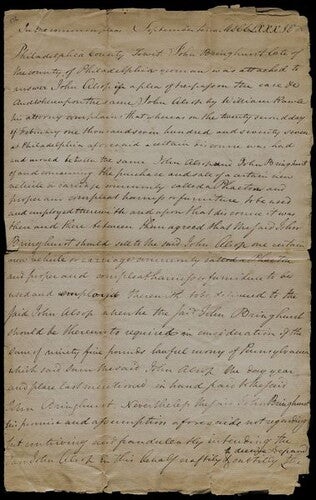 In the common pleas September term MDCCLXXX
Philadelphia County Court John Bringhurst late of
the county of Philadelphia yeoman was attached to
answer John Alsop of a plea of trespass on the case &c
And whereupon the same John Alsop by William Rawle
his attorney complains that whereas on the twenty second day
of February one thousand seven hundred and seventy seven
at Philadelphia aforesaid a certain discourse was had
and moved between the same John Alsop and John Bringhurst
of and concerning the purchase and sale of a certain new
vehicle or carriage commonly called a Phaeton and
proper and compleat harness & furniture to be used
and employed therewith and upon that discourse it was
then and there between them agreed that the said John
Bringhurst should sell to the said John Alsop one certain
new vehicle or carriage commonly called a Phaeton
and proper and compleat harness & furniture to be
used and employed therewith to be delivered to the
said John Alsop when he the said John Bringhurst
should be thereunto required in consideration of the
sum of ninety five pounds lawful money of Pennsylvania
which said sum the said John Alsop the day year
and place last mentioned in hand paid to the said
John Bringhurst Nevertheless the said John Bringhurst
his promise and assumption aforesaid not regarding
but contriving and fraudulently intending the
said John Alsop in this behalf craftily & subtilly
to deceive